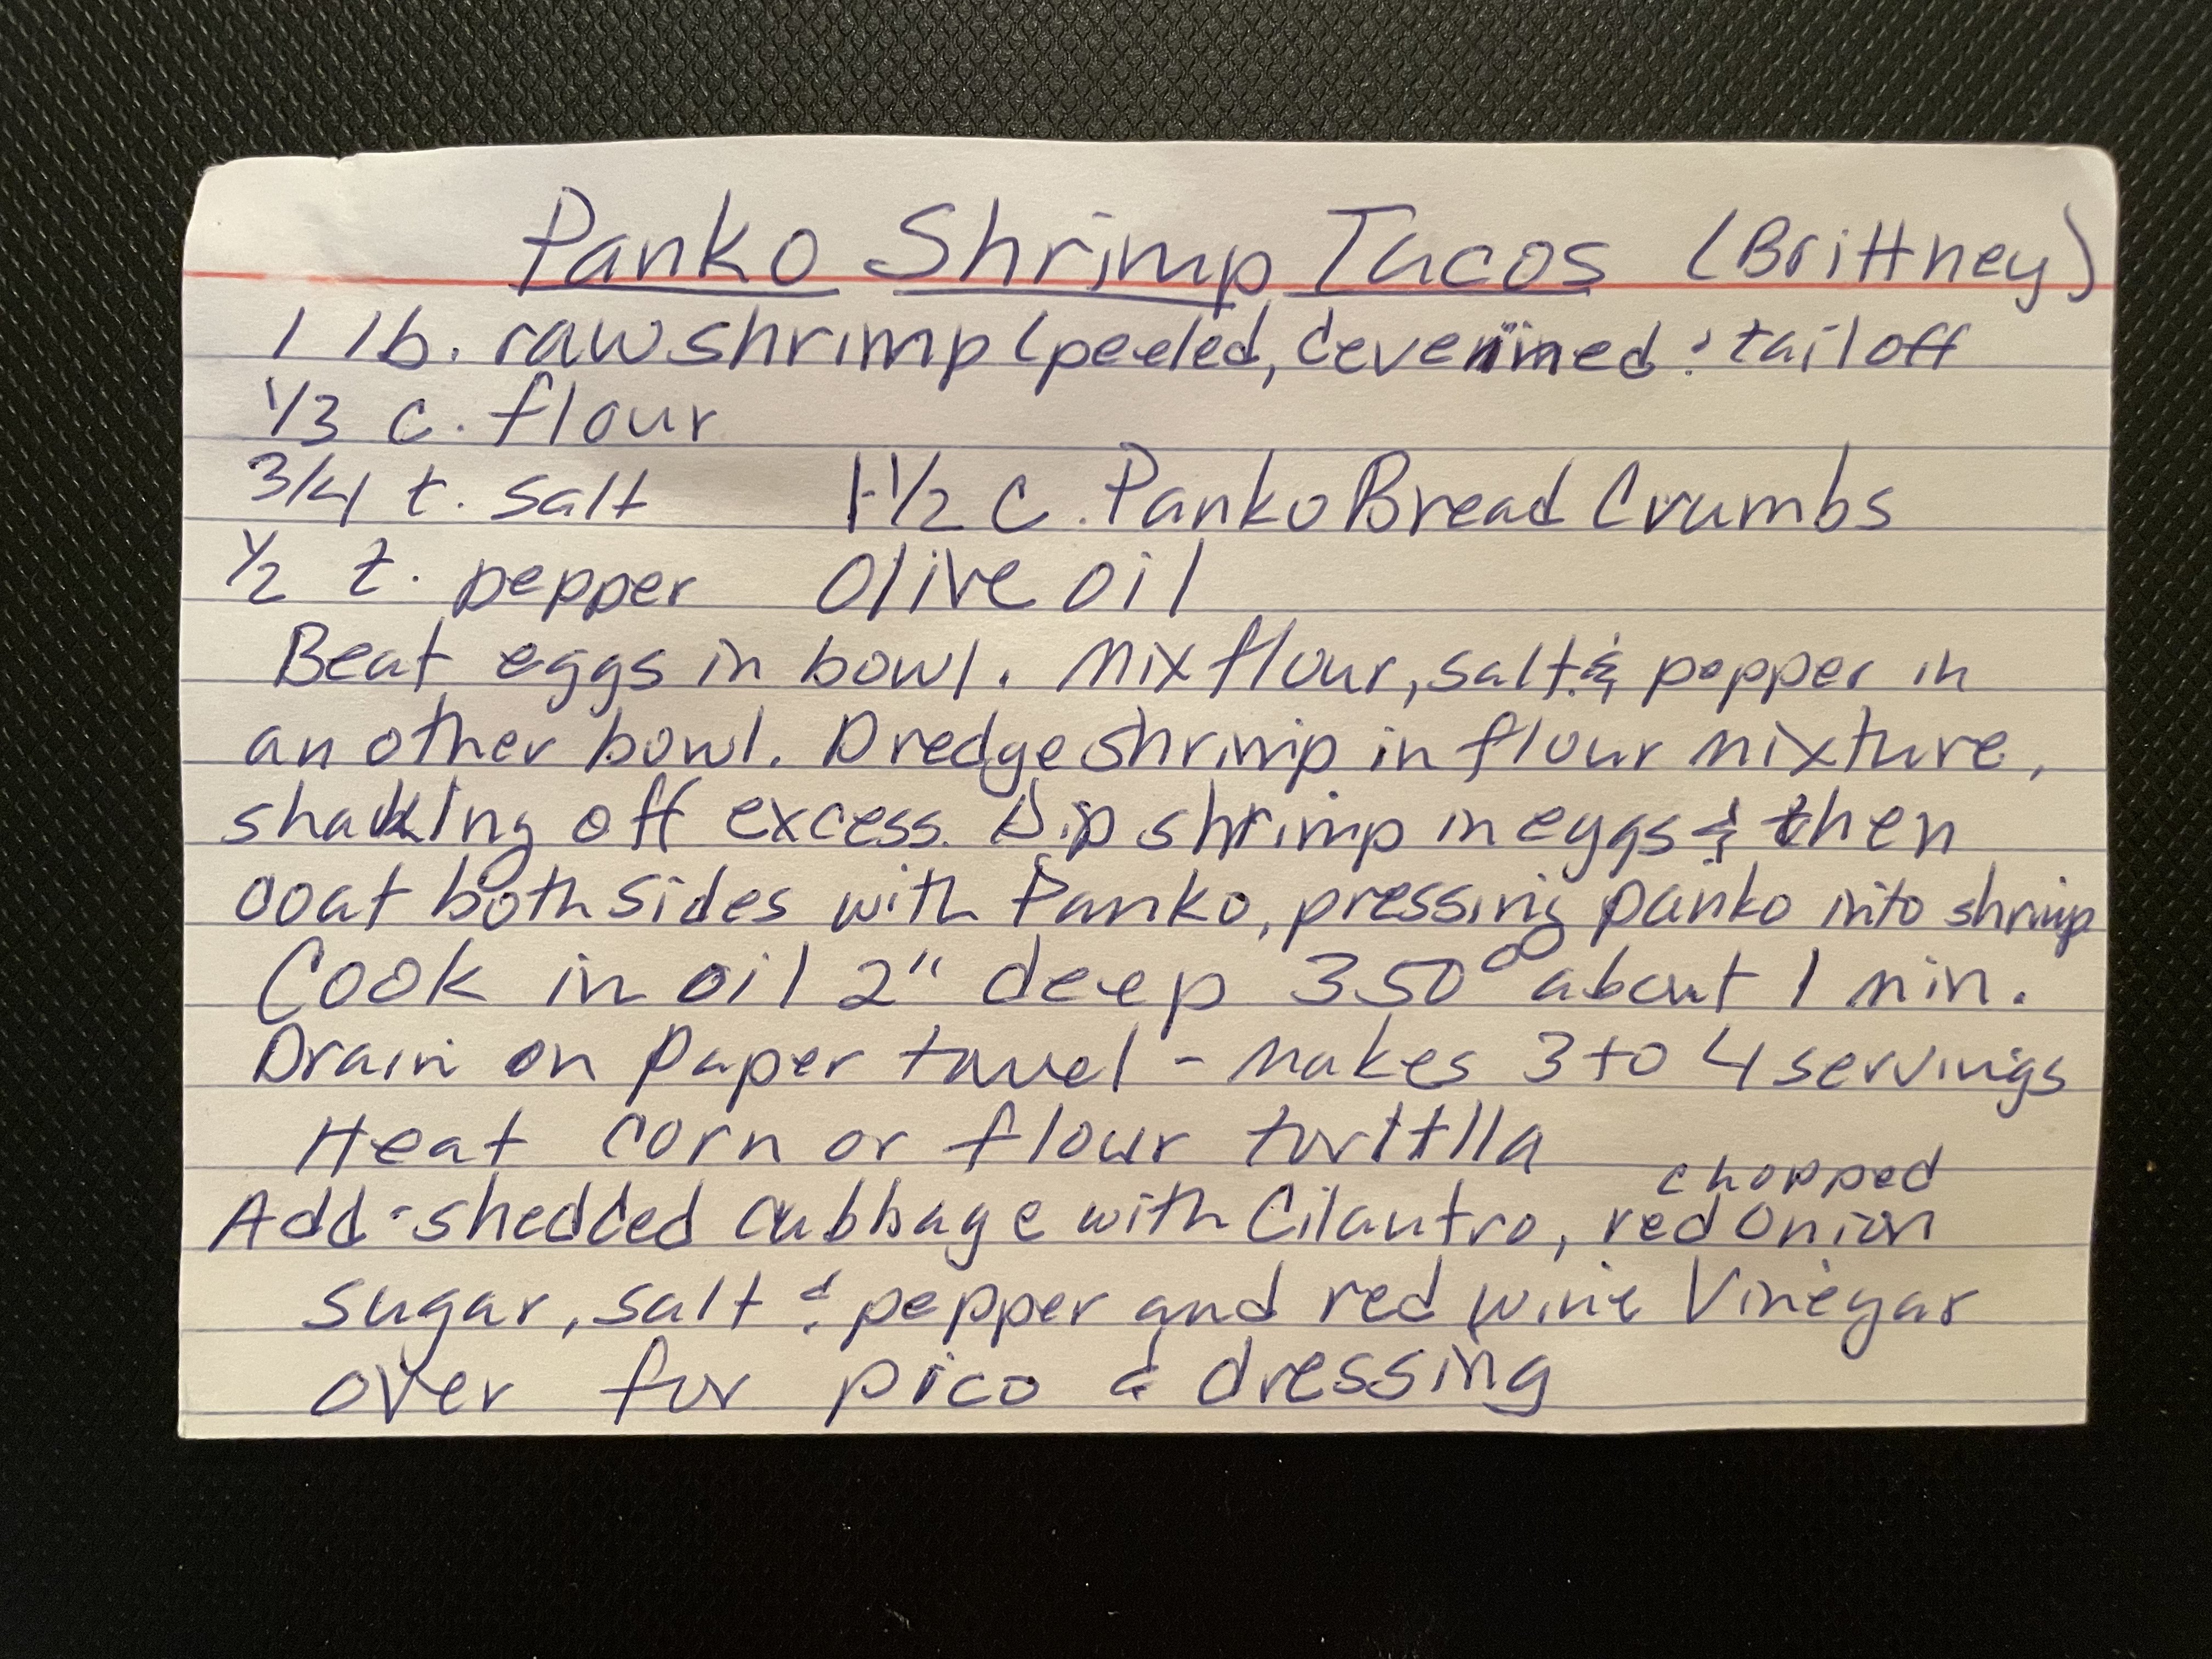 Panko Shrimp Tacos (Brittney)
1 lb. raw shrimp (peeled, deveined & tail off
1/3 c. flour
3/4 t. salt 1-1/2 c. Panko Bread Crumbs
1/2 t. pepper Olive oil
Beat eggs in bowl. Mix flour, salt & pepper in
another bowl. Dredge shrimp in flour mixture,
shaking off excess. Dip shrimp in eggs & then
coat both sides with Panko, pressing panko into shrimp
Cook in oil 2" deep 350° about 1 min.
Drain on paper towel - Makes 3 to 4 servings
Heat corn or flour torttlla
chopped
Add - shedded cabbage with Cilantro, red onion
sugar, salt & pepper and red wine Vinegar
over for pico & dressing